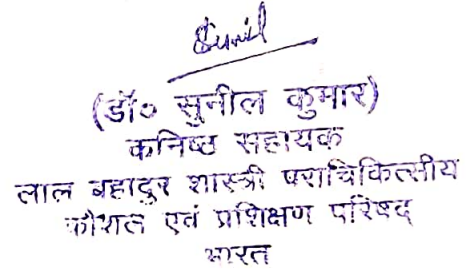 Sunil
(डॉ० सुनील कुमार)
कनिष्ठ सहायक
लाल बहादुर शास्त्री पराचिकित्सीय
कौशल एवं प्रशिक्षण परिषद
भारत